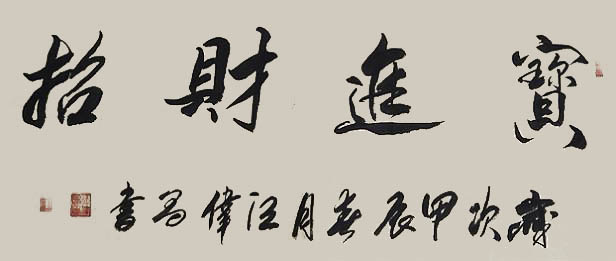 招財進寶
歲次甲辰春月汪偉書